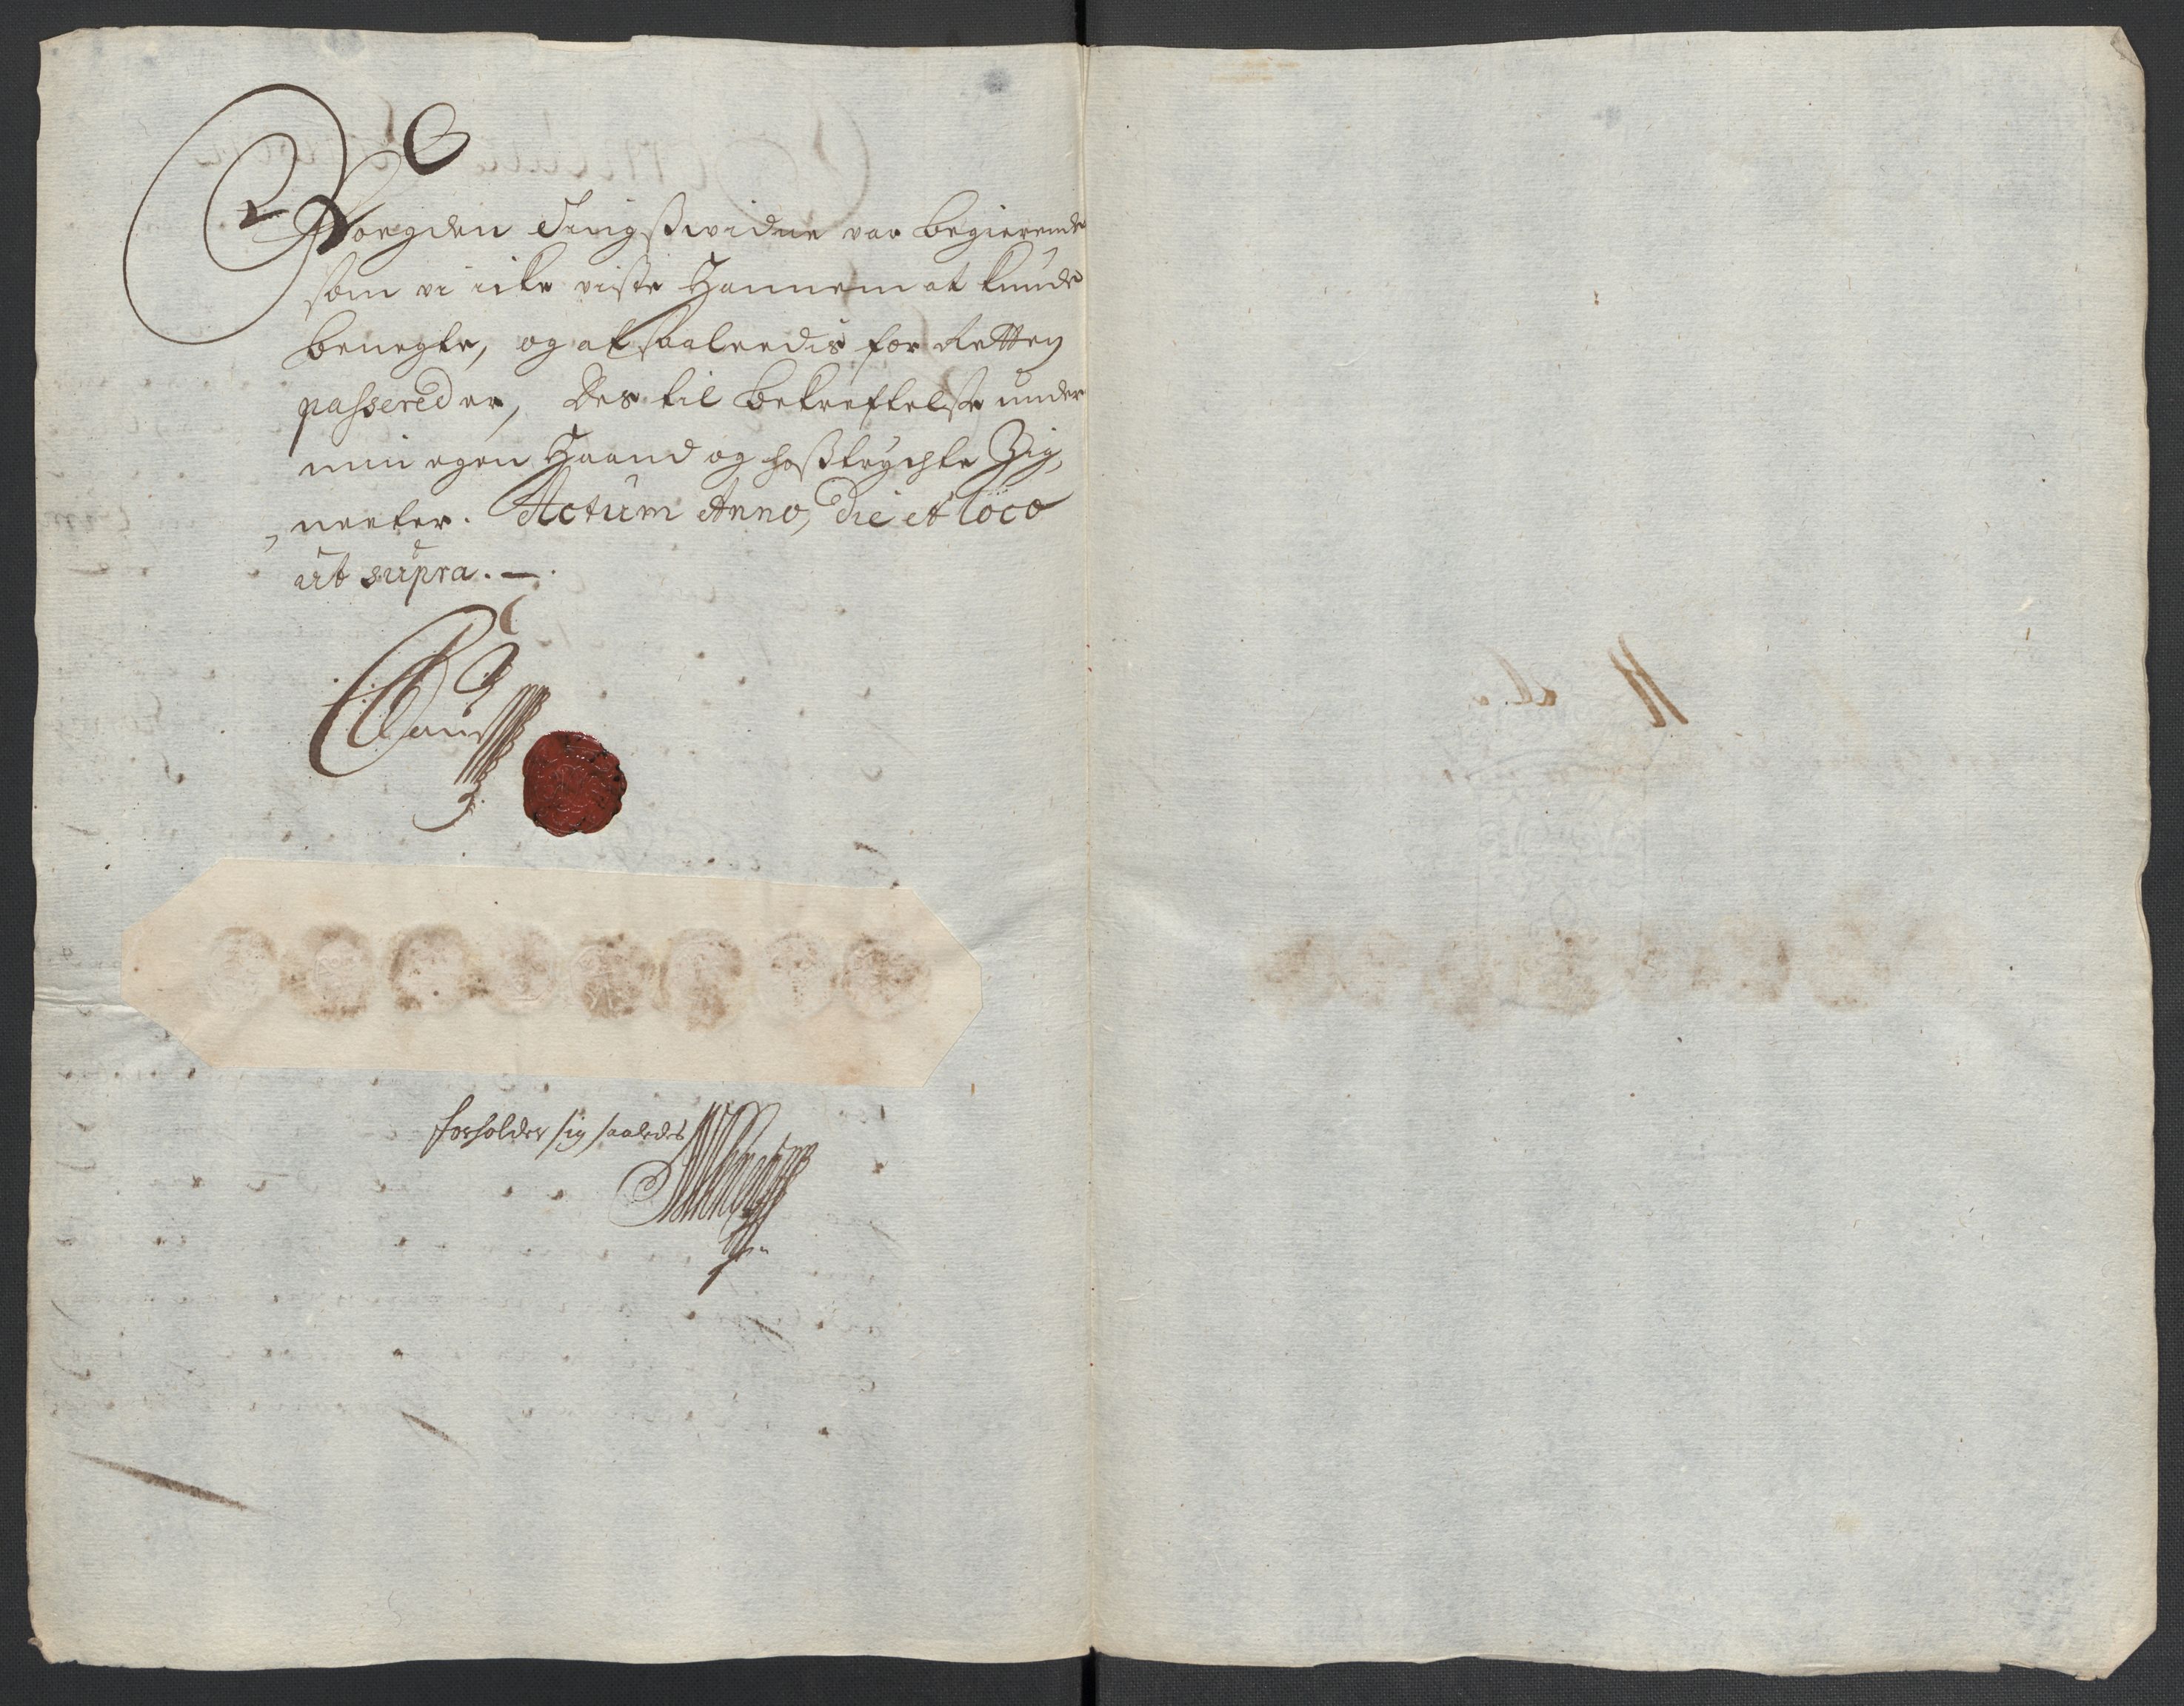 Foegden Tingsswidne var begierende
som vi icke viste Hannem at kunde
benegte, og at saaleedis for Retten
passered er, Des til bekreftelse under
min egen Haand og hosstrychte Zig,
neeter. Actum Anno, die et loco
ut supra. —.
forholder sig saaledes